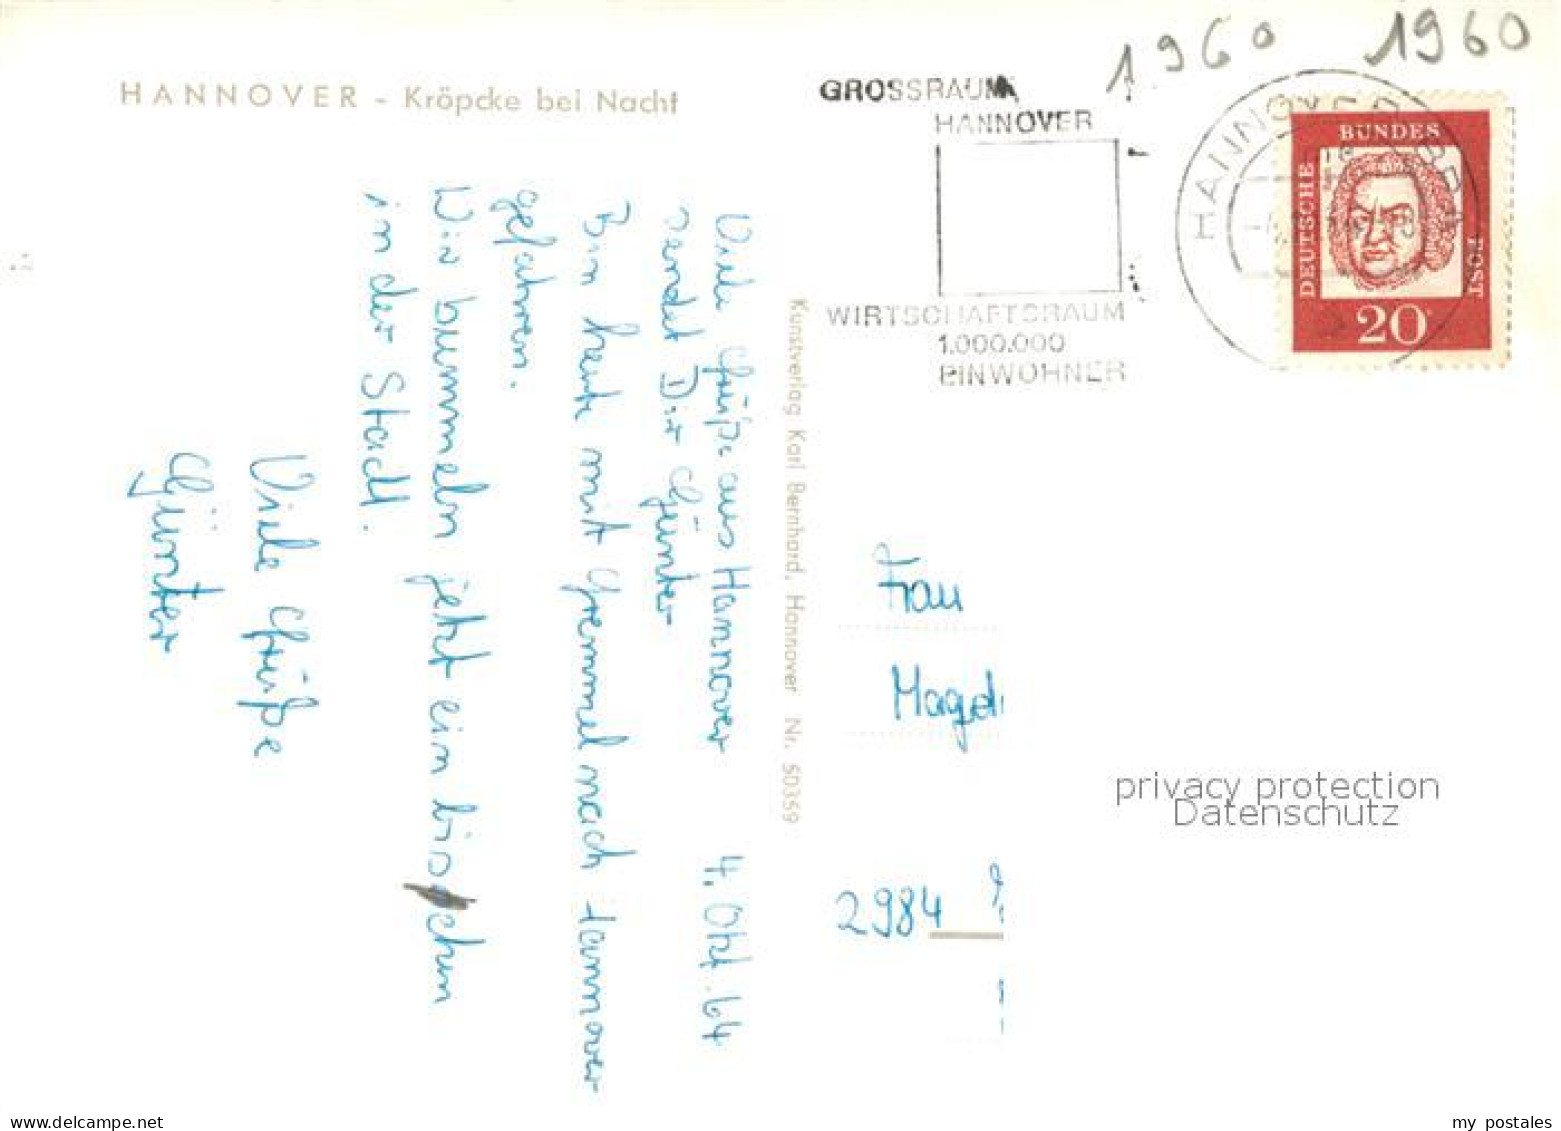 1960 1960
HANNOVER - Kröpcke bei Nacht
GROSSRAUM
HANNOVER
WIRTSCHAFTSRAUM
1.000.000
EINWOHNER
HANNOVER
DEUTSCHE
BUNDES
POST
20
4. Okt. 64
Viele Grüße aus Hannover
sendet Dir Günter
Bin heute mit Gremmel nach Hannover
gefahren.
Wir bummeln jetzt ein bischen
in der Stadt.
Viele Grüße
Günter
Kunstverlag Karl Bernhard, Hannover Nr. 50359
Frau
Magd
2984
privacy protection
Datenschutz
my postales